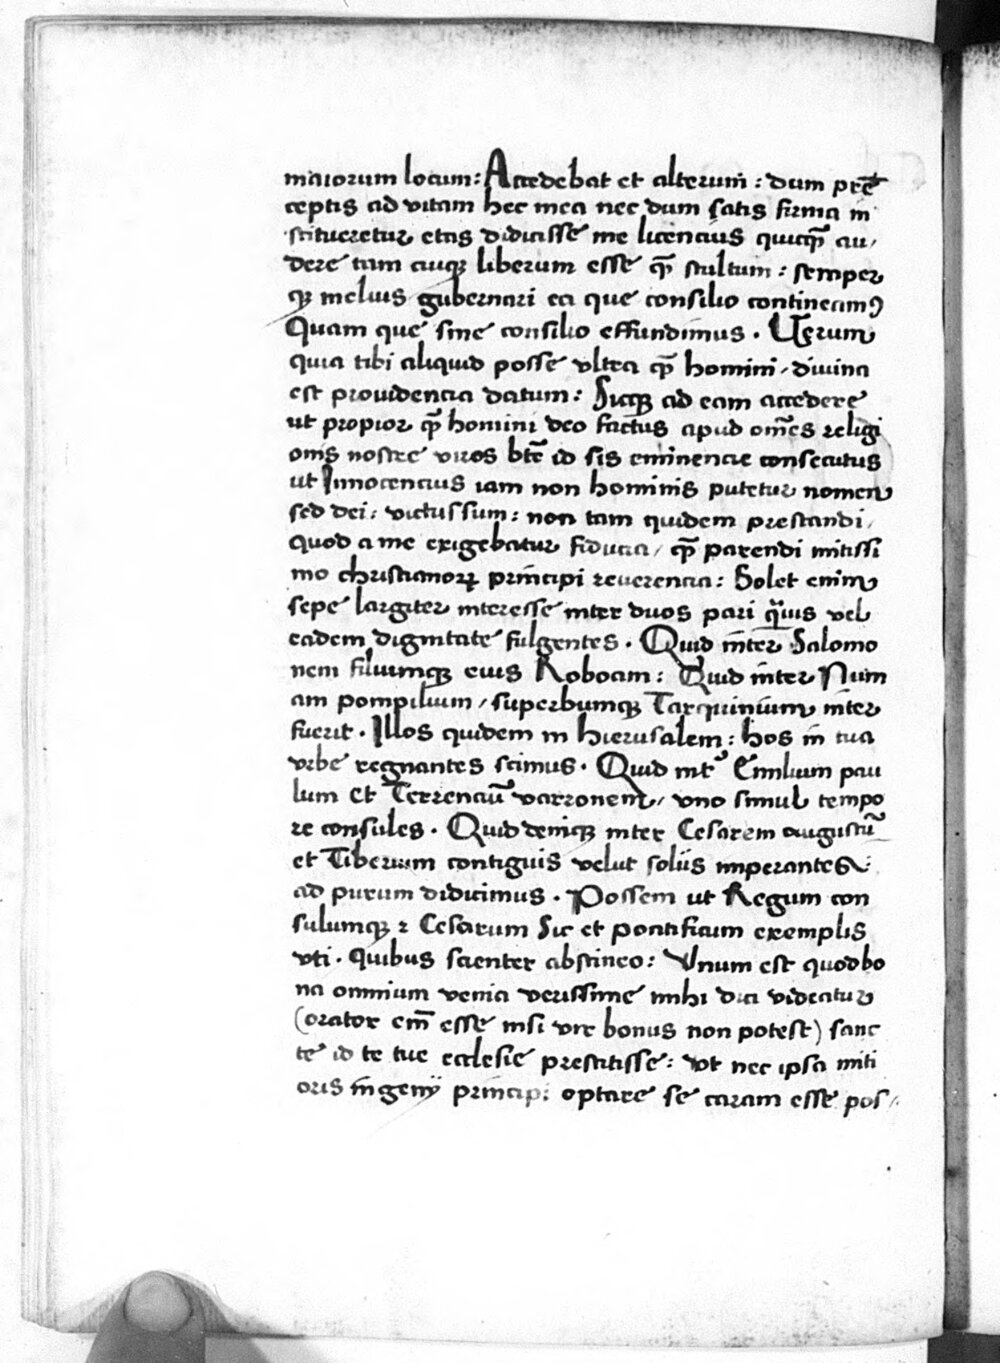 maiorum locum: Accedebat et alterum: dum prē
ceptis ad vitam hec mea nec dum satis firma in
stitueretur etas didicisse me licencius quicq̄ au,
dere tam cuiq; liberum esse q̄ stultum: semper
q; melius gubernari ea que consilio contineamꝰ
Quam que sine consilio effundimus. Verum
quia tibi aliquid posse vltra q̄ homini, diuina
est prouidencia datum: Sicq; ad eam accedere
ut propior q̄ homini deo factus apud om̄es religi
onis nostre viros btē id sis eminencie consecutus
ut Innocencius iam non hominis putetur nomen
sed dei: victus sum: non tam quidem prestandi,
quod a me exigebatur fiducia, q̄ parendi mitissi
mo christianoꝝ principi reuerencia: Solet enim
sepe largiter interesse inter duos pari q̄uis vel
eadem dignitate fulgentes. Quid inter Salomo
nem filiumq; eius Roboam: Quid inter Num
am pompilium, superbumq; Tarquinium inter
fuerit. Illos quidem in hierusalem: hos in tua
vrbe regnantes scimus. Quid intꝰ Emilium pau
lum et Terrenciū varronem, vno simul tempo
re consules. Quid deniq; inter Cesarem augustū
et Tiberium contiguis velut soliis imperantes:
ad purum didicimus. Possem ut Regum con
sulumq; ⁊ Cesarum Sic et pontificum exemplis
vti. quibus scienter abstineo: Vnum est quod bo
na omnium venia verissime mihi dici videatur
(orator em̄ esse nisi vir bonus non potest) sanc
te id te tue ecclesie prestitisse: vt nec ipsa miti
oris ingenij principi optare se curam esse pos,